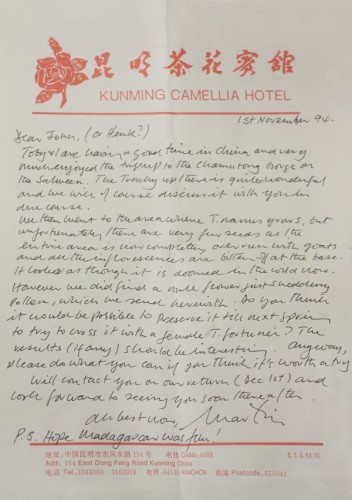 昆明茶花賓館
KUNMING CAMELLIA HOTEL
1st November 94.
Dear John, (or Henk?)
Toby & I are having a good time in China and very
much enjoyed the trip up to the Champutong Gorge on
the Salween. The Trachy up there is quite wonderful
and we will of course discuss it with you in
due course.
We then went to the area where T. nanus grows, but
unfortunately there are very few seeds as the
entire area is now completely overrun with goats
and all the inflorescences are bitten off at the base.
It looks as though it is doomed in the wild now.
However we did find a male flower just shedding
pollen, which we send herewith. Do you think
it would be possible to preserve it till next spring
to try to cross it with a female T. fortunei? The
results (if any) should be interesting. Anyway,
please do what you can if you think it's worth a try
Will contact you on our return (Dec 1st) and
look forward to seeing you soon thereafter.
All best now, Martin
P.S. Hope Madagascar was fun!
地址:中国昆明市东风东路 154 号 电挂 Cable:4098
Add: 154 East Dong Feng Road Kunming China
电话 Tel: 3163000 3162918 电传 Telex: 64135 KMCHCN 邮编 Postcode: 650041